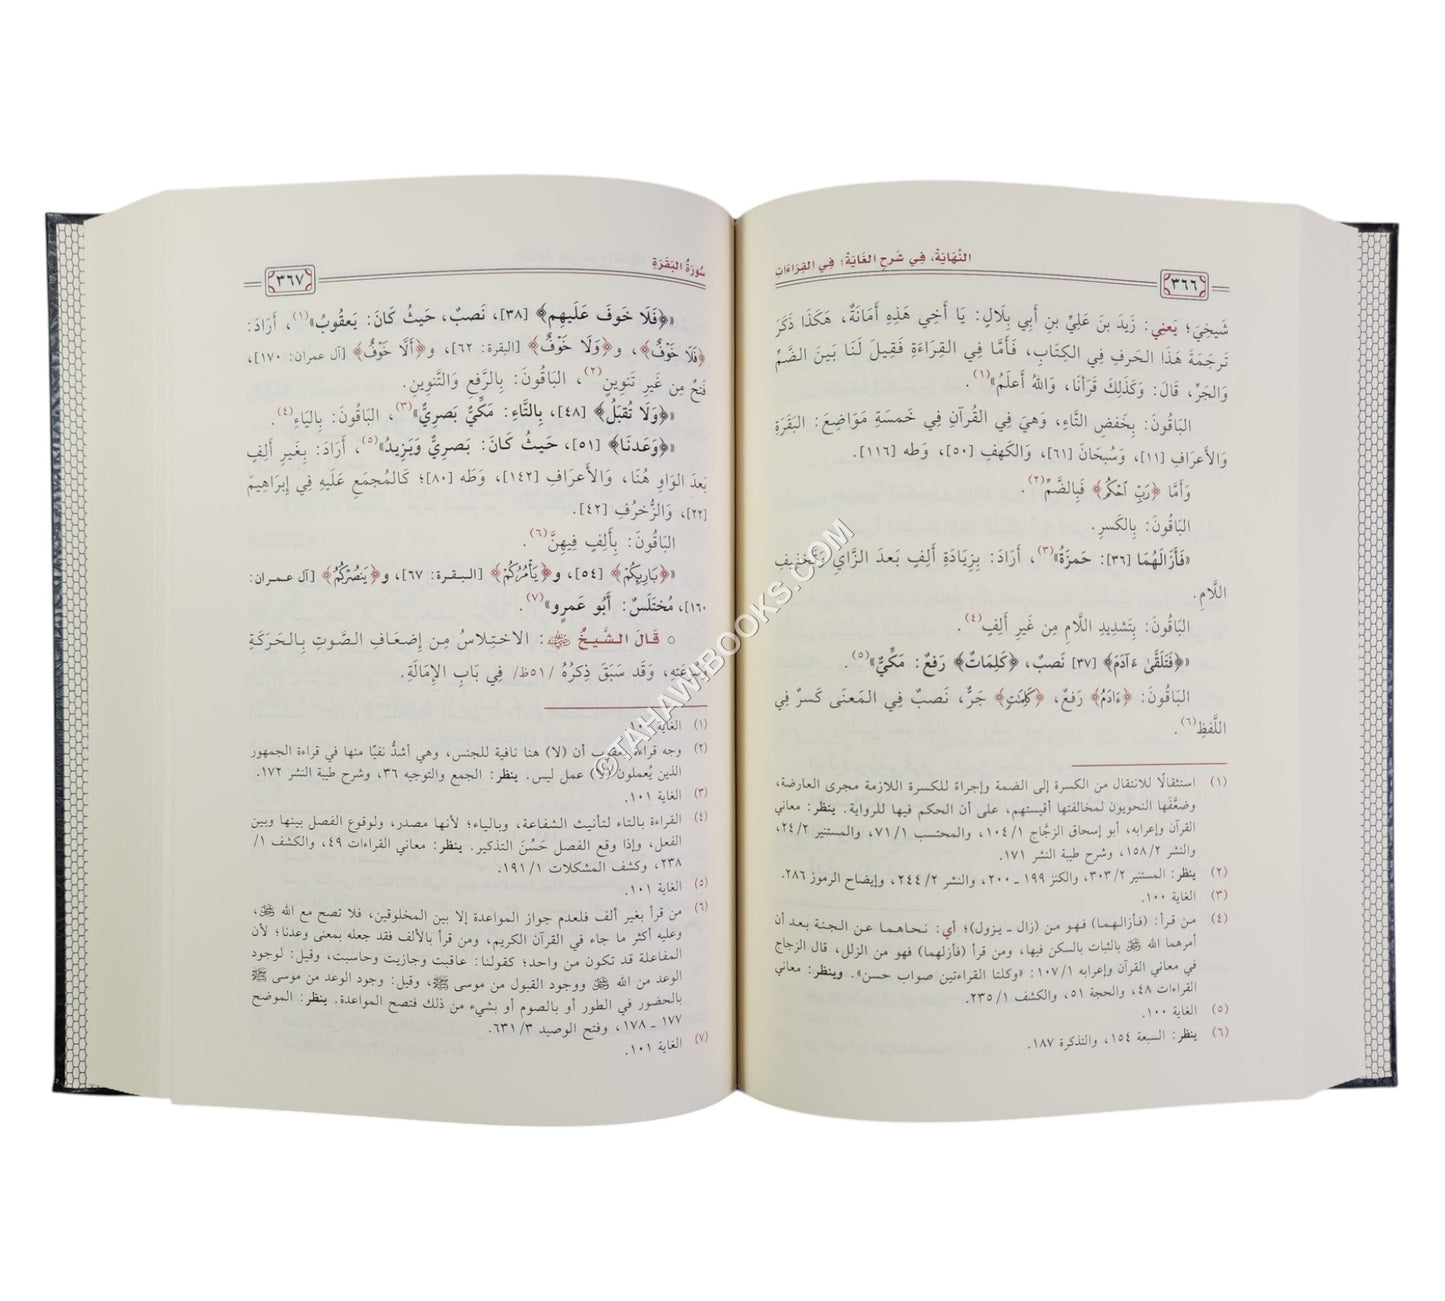 النِّهَايَةُ، فِي شَرحِ الغَايَةِ؛ فِي القِرَاءَاتِ
٣٦٦
شَيخِيَ؛ يَعنِي: زَيدَ بنَ عَلِيِّ بنِ أَبِي بِلَالٍ: يَا أَخِي هَذِهِ أَمَانَةٌ، هَكَذَا ذَكَرَ
تَرجَمَةَ هَذَا الحَرفِ فِي الكِتَابِ، فَأَمَّا فِي القِرَاءَةِ فَقِيلَ لَنَا بَينَ الضَّمِّ
وَالجَرِّ، قَالَ: وَكَذَلِكَ قَرَأنَا، وَاللهُ أَعلَمُ»(١).
البَاقُونَ: بِخَفضِ التَّاءِ، وَهيَ فِي القُرآنِ فِي خَمسَةِ مَوَاضِعَ: البَقَرَةِ
وَالأَعرَافِ [١١]، وَسُبحَانَ [٦١]، وَالكَهفِ [٥٠]، وَطه [١١٦].
وَأَمَّا ﴿رَبِّ ٱحْكُم﴾ فَبِالضَّمِّ(٢).
البَاقُونَ: بِالكَسرِ.
«فَأَزَالَهُمَا [٣٦]: حَمزَةُ»(٣)، أَرَادَ: بِزِيَادَةِ أَلِفٍ بَعدَ الزَّايِ وَتَخفِيفِ
اللَّامِ.
البَاقُونَ: بِتَشدِيدِ اللَّامِ مِن غَيرِ أَلِفٍ(٤).
«﴿فَتَلَقَّىٰ ءَادَمَ﴾ [٣٧] نَصبٌ، ﴿كَلِمَاتٌ﴾ رَفعٌ: مَكِّيٌّ»(٥).
البَاقُونَ: ﴿ءَادَمُ﴾ رَفعٌ، ﴿كَلِمَٰتٍ﴾ جَرٌّ، نَصبٌ فِي المَعنَى كَسرٌ فِي
اللَّفظِ(٦).
(١) استثقالًا للانتقال من الكسرة إلى الضمة وإجراءً للكسرة اللازمة مجرى العارضة،
وضعَّفَها النحويون لمخالفتها أقيستهم، على أن الحكم فيها للرواية. ينظر: معاني
القرآن وإعرابه، أبو إسحاق الزجَّاج ١/ ١٠٤، والمحتسب ١/ ٧١، والمستنير ٢/ ٢٤،
والنشر ٢/ ١٥٨، وشرح طيبة النشر ١٧١.
(٢) ينظر: المستنير ٢/ ٣٠٣، والكنز ١٩٩ ـ ٢٠٠، والنشر ٢/ ٢٤٤، وإيضاح الرموز ٢٨٦.
(٣) الغاية ١٠٠.
(٤) من قرأ: (فأزالهما) فهو من (زال ـ يزول)؛ أي: نحاهما عن الجنة بعد أن
أمرهما الله ﷻ بالثبات بالسكن فيها، ومن قرأ (فأزلهما) فهو من الزلل، قال الزجاج
في معاني القرآن وإعرابه ١/ ١٠٧: «وكلتا القراءتين صواب حسن». وينظر: معاني
القراءات ٤٨، والحجة ٥١، والكشف ١/ ٢٣٥.
(٥) الغاية ١٠٠.
(٦) ينظر: السبعة ١٥٤، والتذكرة ١٨٧.
سُورَةُ البَقَرَةِ
٣٦٧
«﴿فَلَا خَوفَ عَلَيهِم﴾ [٣٨]، نَصبٌ، حَيثُ كَانَ: يَعقُوبُ»(١)، أَرَادَ:
﴿فَلَا خَوْفٌ﴾، و﴿وَلَا خَوْفٌ﴾ [البقرة: ٦٢]، و﴿أَلَّا خَوْفٌ﴾ [آل عمران: ١٧٠]،
فَتحٌ مِن غَيرِ تَنوِينٍ(٢)، البَاقُونَ: بِالرَّفعِ وَالتَّنوِينِ.
«﴿وَلَا تُقبَلُ﴾ [٤٨]، بِالتَّاءِ: مَكِّيٌّ بَصرِيٌّ»(٣)، البَاقُونَ: بِاليَاءِ(٤).
«﴿وَعَدنَا﴾ [٥١]، حَيثُ كَانَ: بَصرِيٌّ وَيَزِيدُ»(٥)، أَرَادَ: بِغَيرِ أَلِفٍ
بَعدَ الوَاوِ هُنَا، وَالأَعرَافِ [١٤٢]، وَطَه [٨٠]؛ كَالمُجمَعِ عَلَيهِ فِي إِبرَاهِيمَ
[٢٢]، وَالزُّخرُفِ [٤٢].
البَاقُونَ: بِأَلِفٍ فِيهِنَّ(٦).
«﴿بَارِيكُمْ﴾ [٥٤]، و﴿يَأْمُرُكُمْ﴾ [البقرة: ٦٧]، و﴿يَنصُرْكُمُ﴾ [آل عمران:
١٦٠]، مُختَلَسٌ: أَبُو عَمرٍو»(٧).
○ قَالَ الشَّيخُ ﷺ: الاختِلَاسُ مِن إِضعَافِ الصَّوتِ بِالحَرَكَةِ
وَقَد سَبَقَ ذِكرُهُ /٥١ظ/ فِي بَابِ الإِمَالَةِ.
(١) الغاية
(٢) وجه قراءة يعقوب أن (لا) هنا نافية للجنس، وهي أشدُّ نفيًا منها في قراءة الجمهور
الذين يُعملون (لا) عمل ليس. ينظر: الجمع والتوجيه ٣٦، وشرح طيبة النشر ١٧٢.
(٣) الغاية ١٠١.
(٤) القراءة بالتاء لتأنيث الشفاعة، وبالياء؛ لأنها مصدر، ولوقوع الفصل بينها وبين
الفعل، وإذا وقع الفصل حَسُنَ التذكير. ينظر: معاني القراءات ٤٩، والكشف ١/
٢٣٨، وكشف المشكلات ١/ ١٩١.
(٥) الغاية ١٠١.
(٦) من قرأ بغير ألف فلعدم جواز المواعدة إلا بين المخلوقين، فلا تصح مع الله ﷻ،
وعليه أكثر ما جاء في القرآن الكريم، ومن قرأ بالألف فقد جعله بمعنى وعدنا؛ لأن
المفاعلة قد تكون من واحد؛ كقولنا: عاقبت وجازيت وحاسبت، وقيل: لوجود
الوعد من الله ﷻ ووجود القبول من موسى ﷺ، وقيل: وجود الوعد من موسى ﷺ
بالحضور في الطور أو بالصوم أو بشيء من ذلك فتصح المواعدة. ينظر: الموضح
١٧٧ ـ ١٧٨، وفتح الوصيد ٣/ ٦٣١.
(٧) الغاية ١٠١.
©TAHAWIBOOKS.COM